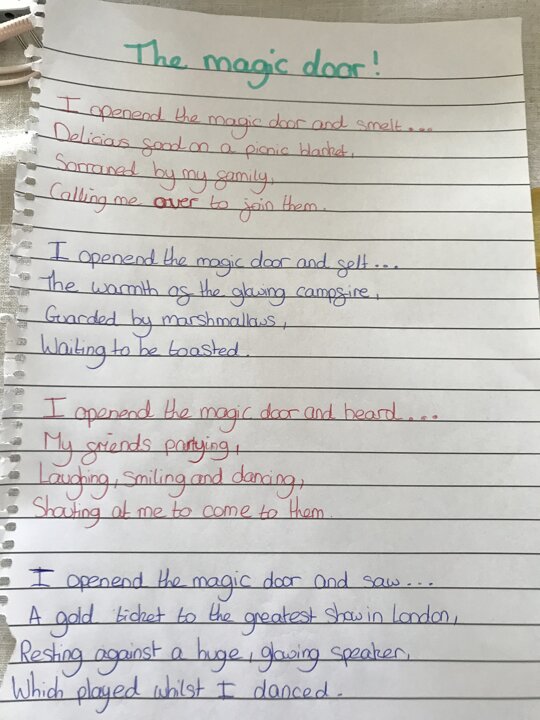 The magic door!
I openend the magic door and smelt...
Delicias food on a picnic blanket,
Sorraned by my family,
Calling me over to join them.
I openend the magic door and felt...
The warmth of the glowing campfire,
Guarded by marshmallows,
Waiting to be toasted.
I openend the magic door and heard....
My friends partying,
Laughing, smiling and dancing,
Shouting at me to come to them.
I openend the magic door and saw...
A gold ticket to the greatest show in London,
Resting against a huge, glowing speaker,
Which played whilst I danced.